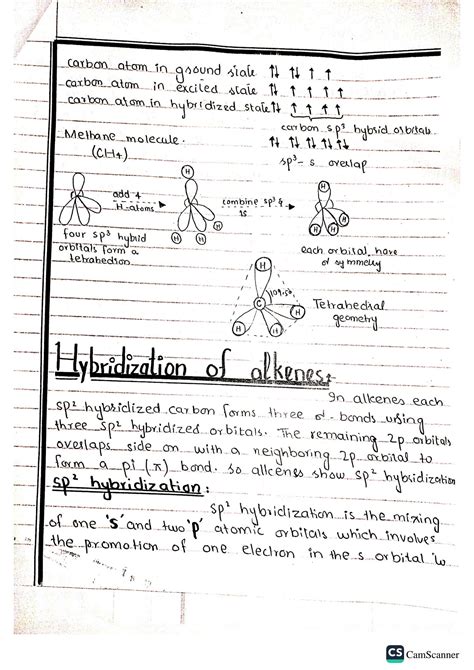 carbon atom in ground state ↑↓ ↑↓ ↑ ↑
carbon atom in excited state ↑↓ ↑ ↑ ↑ ↑
carbon atom in hybridized state ↑↓ ↑ ↑ ↑ ↑
carbon sp³ hybrid orbitals
Methane molecule.
(CH4)
↑↓ ↑↓ ↑↓ ↑↓ ↑↓
sp³-s overlap
H
add 4
H-atoms
H
H
H
combine sp³ &
1s
H
H
H
H
four sp³ hybrid
orbitals form a
tetrahedron
each orbital have
of symmetry
H
109.5°
C
H
H
H
Tetrahedral
geometry
Hybridization of alkenes:
In alkenes each
sp² hybridized carbon forms three σ-bonds using
three sp² hybridized orbitals. The remaining 2p orbitals
overlaps side on with a neighboring 2p orbital to
form a pi (π) bond. so alkenes show sp² hybridization
sp² hybridization:
sp² hybridization is the mixing
of one 's' and two 'p' atomic orbitals which involves
the promotion of one electron in the s orbital
CS CamScanner